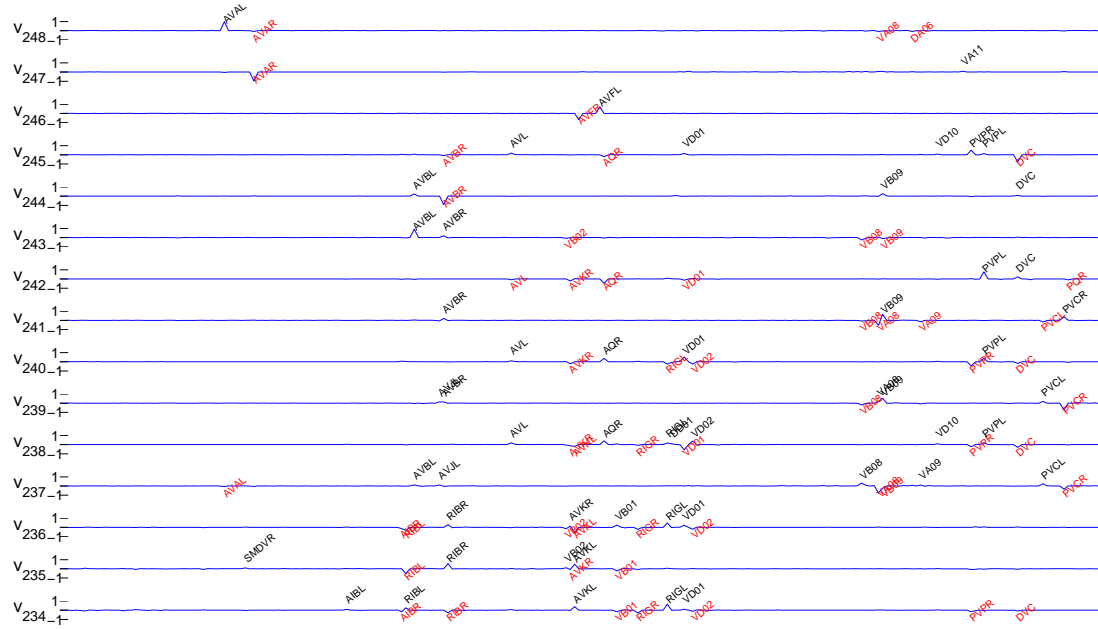 V 248 1 -1 AVAL AVAR VA08 DA06
V 247 1 -1 AVAR VA11
V 246 1 -1 AVFR AVFL
V 245 1 -1 AVBR AVL AQR VD01 VD10 PVPR PVPL DVC
V 244 1 -1 AVBL AVBR VB09 DVC
V 243 1 -1 AVBL AVBR VB02 VB08 VB09
V 242 1 -1 AVL AVKR AQR VD01 PVPL DVC PQR
V 241 1 -1 AVBR VB08 VA08 VB09 VA09 PVCL PVCR
V 240 1 -1 AVL AVKR AQR RIGL VD01 VD02 PVPR PVPL DVC
V 239 1 -1 AVJL AVBR VB08 VA08 VB09 PVCL PVCR
V 238 1 -1 AVL AVKR AVKL AQR RIGR RIGL DD01 VD01 VD02 VD10 PVPR PVPL DVC
V 237 1 -1 AVAL AVBL AVJL VB08 VA08 VB09 VA09 PVCL PVCR
V 236 1 -1 AIBR RIBL RIBR VB02 AVKR AVKL VB01 RIGR RIGL VD01 VD02
V 235 1 -1 SMDVR RIBL RIBR VB02 AVKR AVKL VB01
V 234 1 -1 AIBL AIBR RIBL RIBR AVKL VB01 RIGR RIGL VD01 VD02 PVPR DVC